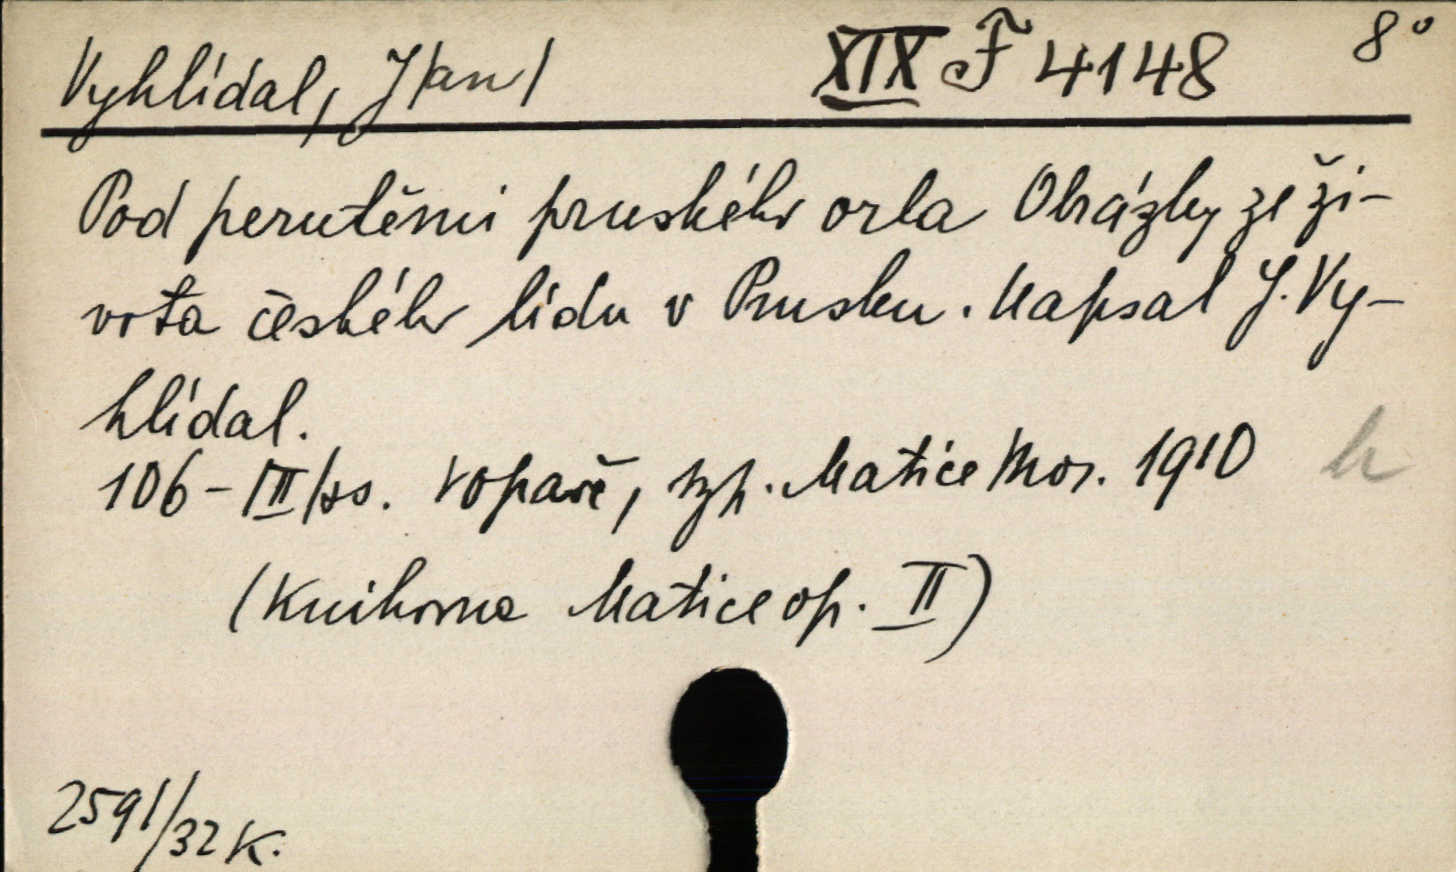 Vyhlídal, J/an/ XIX F 4148 8°
Pod perutěmi pruského orla Obrázky ze ži-
vota českého lidu v Prusku. Napsal J. Vy-
hlídal.
106-/III/ss. V Opavě, Matice Mor. 1910
(Knihovna Matice op. II)
2591/32 K.